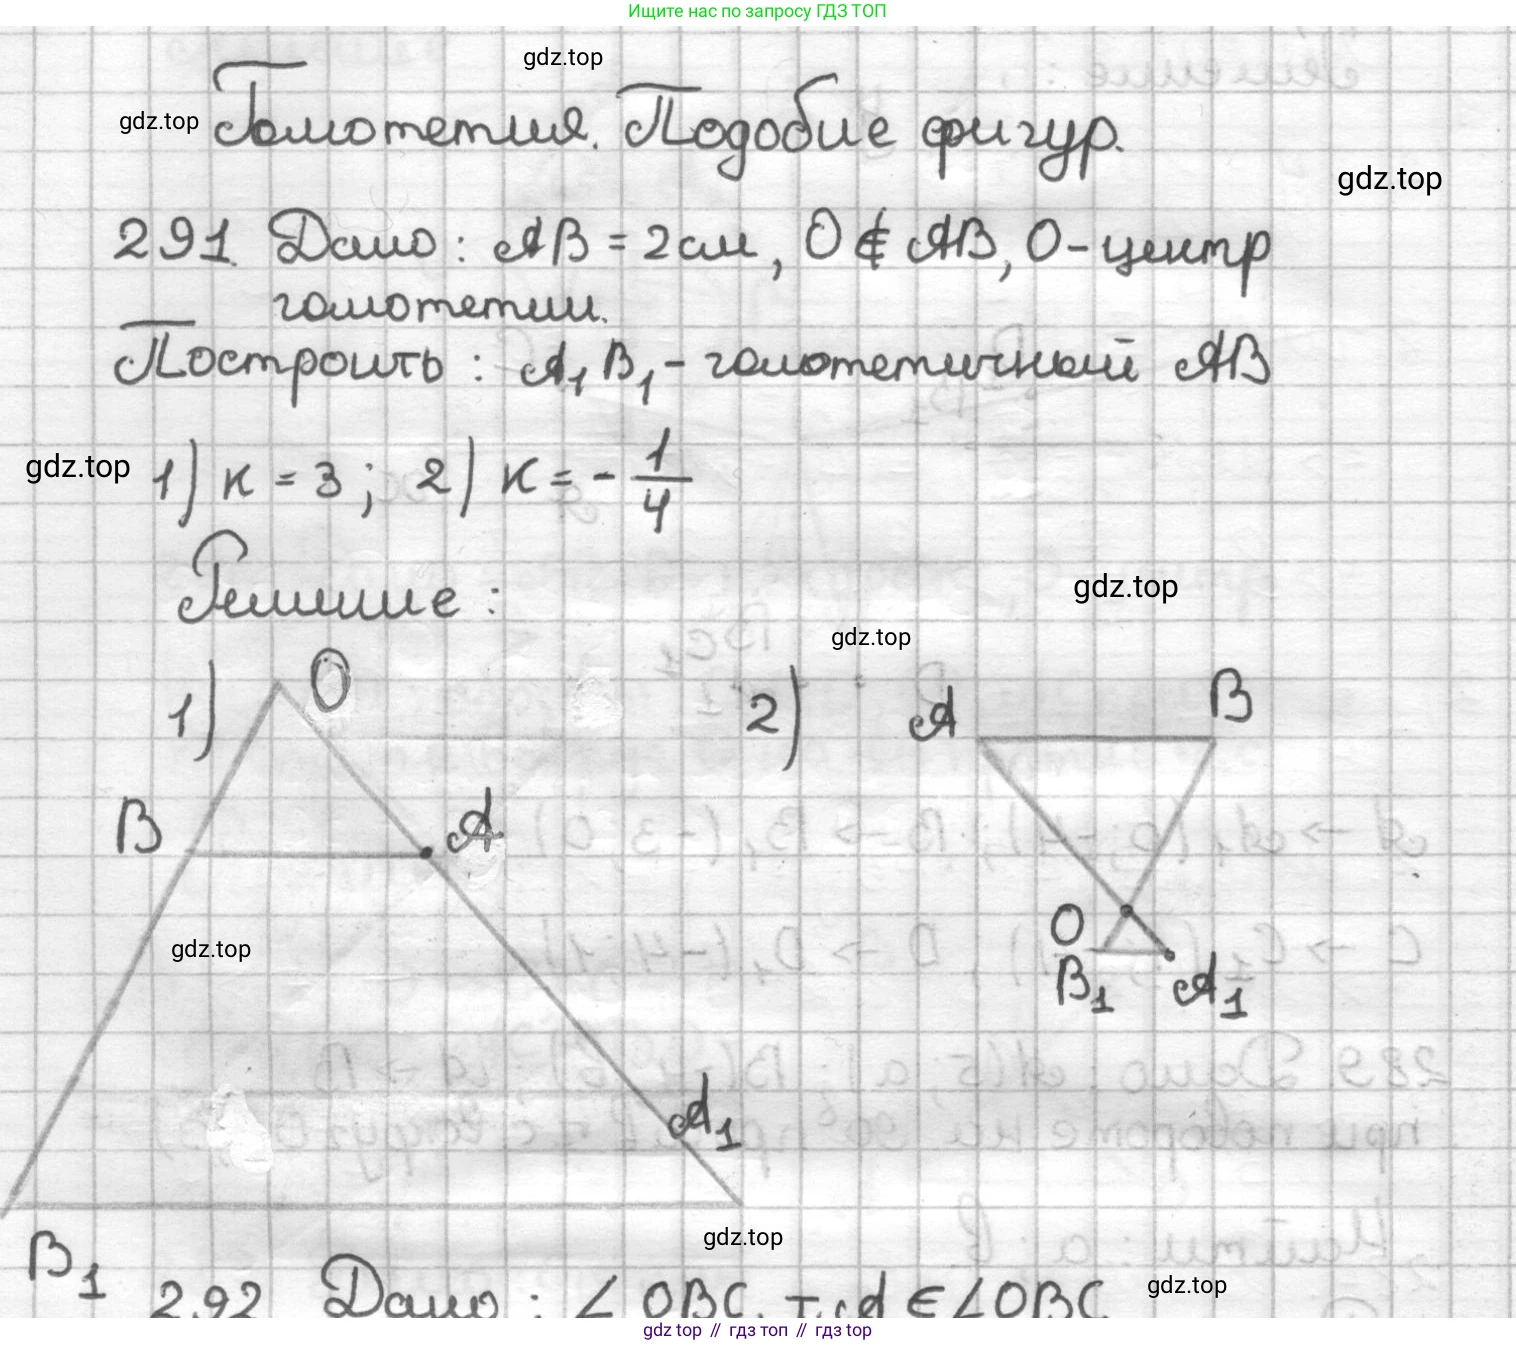 Ищите нас по запросу ГДЗ ТОП
gdz.top
gdz.top Гомотетия. Подобие фигур.
gdz.top
291. Дано: AB = 2 см, O ∉ AB, O - центр
гомотетии.
Построить: A₁B₁ - гомотетичный AB
gdz.top 1) к = 3; 2) к = - 1/4
Решение:
gdz.top
gdz.top
1) O 2) A B
B A
O
gdz.top
B₁ A₁
A₁
gdz.top
B₁
gdz.top
292 Дано: ∠OBC, т. A ∈ ∠OBC
gdz top // гдз топ // гдз top